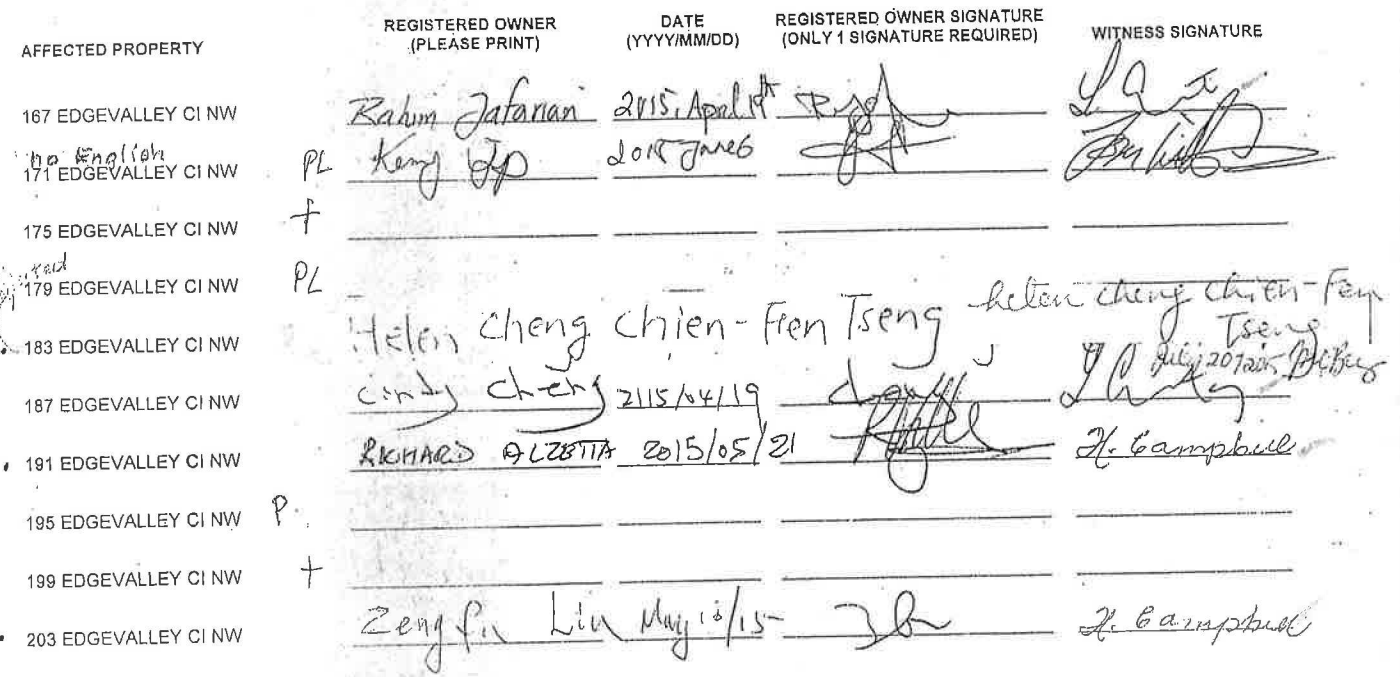 AFFECTED PROPERTY REGISTERED OWNER (PLEASE PRINT) DATE (YYYY/MM/DD) REGISTERED OWNER SIGNATURE (ONLY 1 SIGNATURE REQUIRED) WITNESS SIGNATURE
167 EDGEVALLEY CI NW Rahim Jafarian 2015, April 19th
no English
171 EDGEVALLEY CI NW PL Keny June 6
175 EDGEVALLEY CI NW †
179 EDGEVALLEY CI NW PL
183 EDGEVALLEY CI NW Helen Cheng Chien-Fen Tseng helen cheng chien-Fen Tseng
187 EDGEVALLEY CI NW Cindy Cheng 2115/04/19
191 EDGEVALLEY CI NW RICHARD ALZETTA 2015/05/21 H. Campbell
195 EDGEVALLEY CI NW P.
199 EDGEVALLEY CI NW †
203 EDGEVALLEY CI NW Zeng fu Liu May /15 H. Campbell